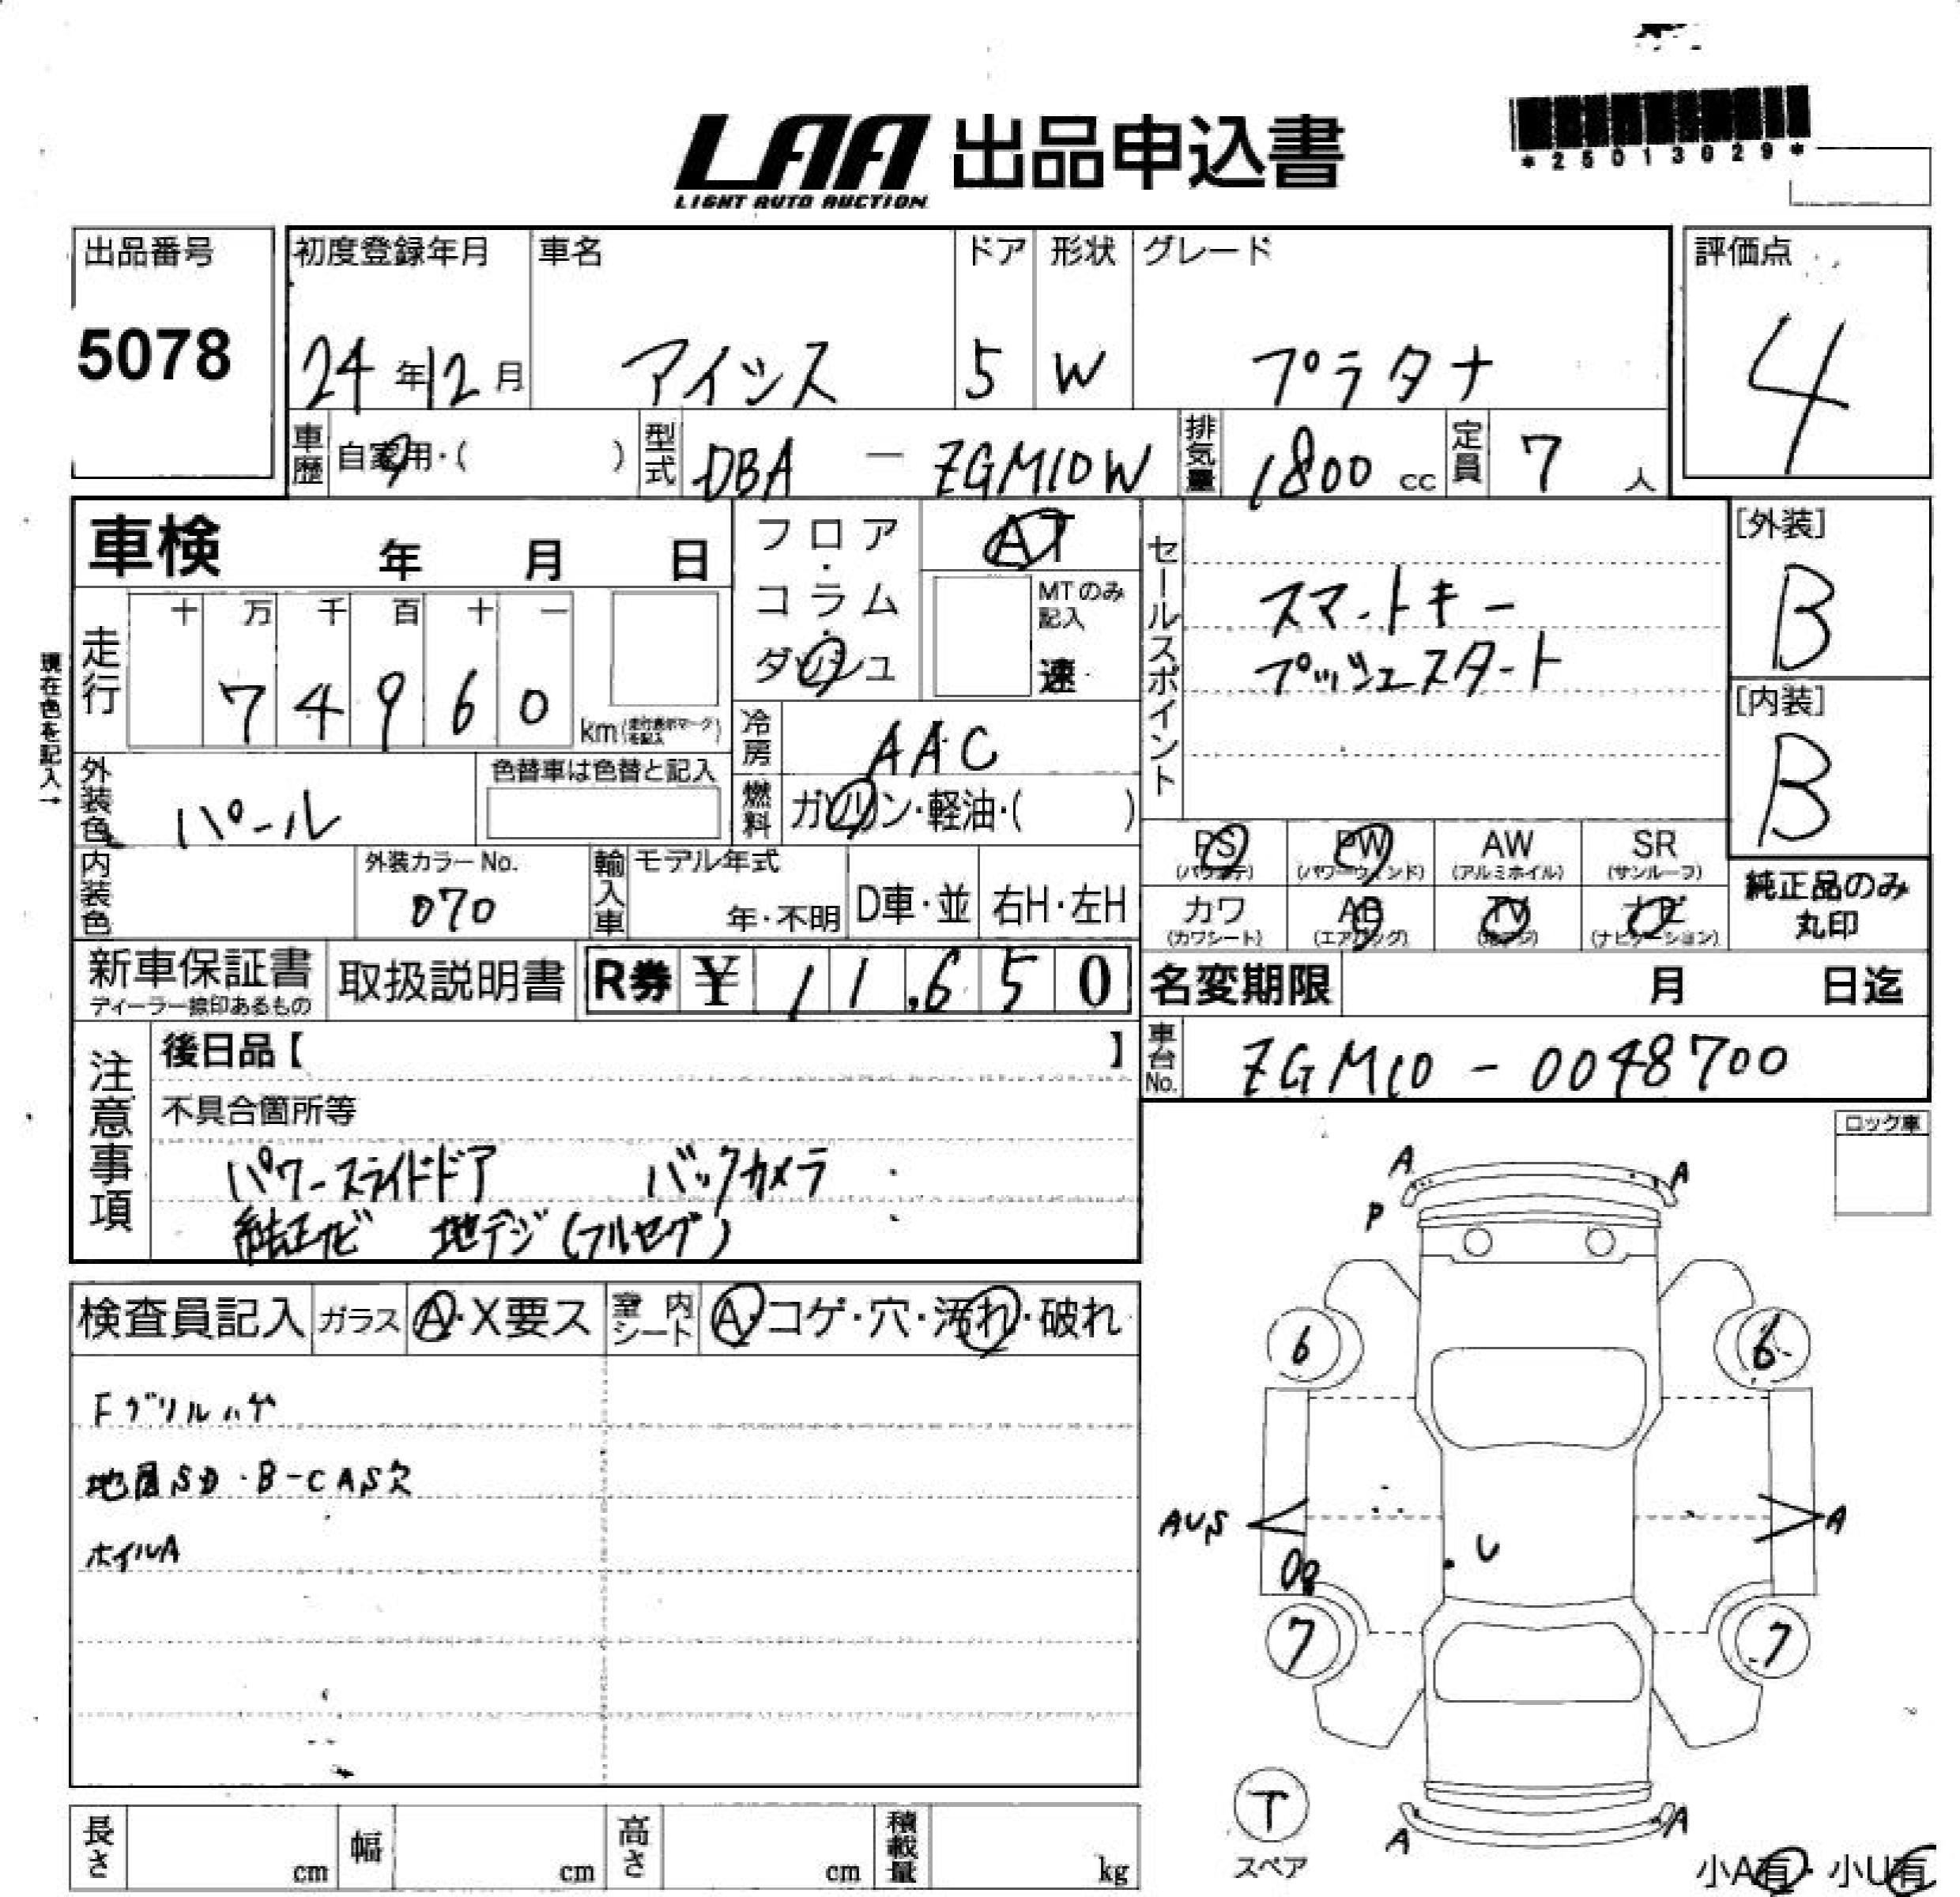 LAA 出品申込書
LIGHT AUTO AUCTION
*25013029*
出品番号
5078
初度登録年月
24年12月
車名
アイシス
ドア
5
形状
W
グレード
プラタナ
評価点
4
車歴
自家用・( )
型式
DBA - ZGM10W
排気量
1800 cc
定員
7 人
車検 年 月 日
フロア・コラム・ダッシュ
AT
MTのみ記入
速
セールスポイント
スマートキー
プッシュスタート
[外装]
B
[内装]
B
現在色を記入→
走行
十 万 千 百 十 一
7 4 9 6 0
km(走行表示マークを記入)
冷房
AAC
外装色
パール
色替車は色替と記入
燃料
ガソリン・軽油・( )
内装色
外装カラーNo.
070
輸入車
モデル年式
年・不明
D車・並
右H・左H
PS
(パワステ)
PW
(パワーウィンド)
AW
(アルミホイル)
SR
(サンルーフ)
カワ
(カワシート)
AB
(エアバッグ)
TV
(地デジ)
ナビ
(ナビゲーション)
純正品のみ
丸印
新車保証書
ディーラー捺印あるもの
取扱説明書
R券 ¥ 11,650
名変期限 月 日迄
車台No.
ZGM10 - 0048700
注意事項
後日品【 】
不具合箇所等
パワースライドドア バックカメラ
純正ナビ 地デジ(フルセグ)
ロック車
検査員記入
ガラス
A・X要ス
室内シート
A・コゲ・穴・汚れ・破れ
Fグリルハゲ
地図SD・B-CAS欠
ホイルA
A
A
P
6
6
AUS
A
U
7
7
T
スペア
A
A
小A有・小U有
長さ cm
幅 cm
高さ cm
積載量 kg